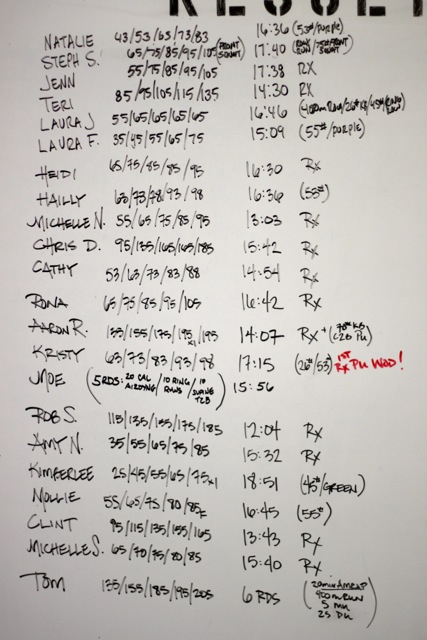 RESULT
NATALIE 43/53/63/73/83 16:36 (53#/PURPLE)
STEPH S. 65/75/85/95/105 (FRONT SQUAT) 17:40
JENN 55/75/85/95/105 17:38 RX
TERI 85/95/105/115/135 14:30 RX
LAURA J 55/65/65/65/65 16:46
LAURA F. 35/45/55/65/75 15:09 (55#/PURPLE)
HEIDI 65/75/85/85/95 16:30 Rx
HAILLY 63/73/78/93/98 16:36 (53#)
MICHELLE N. 55/65/75/85/95 13:03 Rx
CHRIS D. 95/135/165/165/185 15:42 Rx
CATHY 53/63/73/83/88 14:54 Rx
RONA 65/75/85/95/105 16:42 Rx
AARON R. 135/155/175/195 x1/195 14:07 Rx+
KRISTY 63/73/83/93/98 17:15 (26#/53#) 1ST Rx PU WOD!
MOE (5 RDS: 20 CAL AIRDYNE/10 RING ROWS/10 T2B) 15:56
ROB S. 115/135/155/175/185 12:04 Rx
AMY N. 35/55/65/75/85 15:32 Rx
KIMBERLEE 25/45/55/65/75x1 18:51 (45#/GREEN)
MOLLIE 55/65/75/80/85F 16:45 (55#)
CLINT 95/115/135/155/165 13:43 Rx
MICHELLE S. 65/70/75/80/85 15:40 Rx
TOM 135/155/185/195/205 6 RDS (20min AMRAP
400m RUN
5 MU
25 DU)